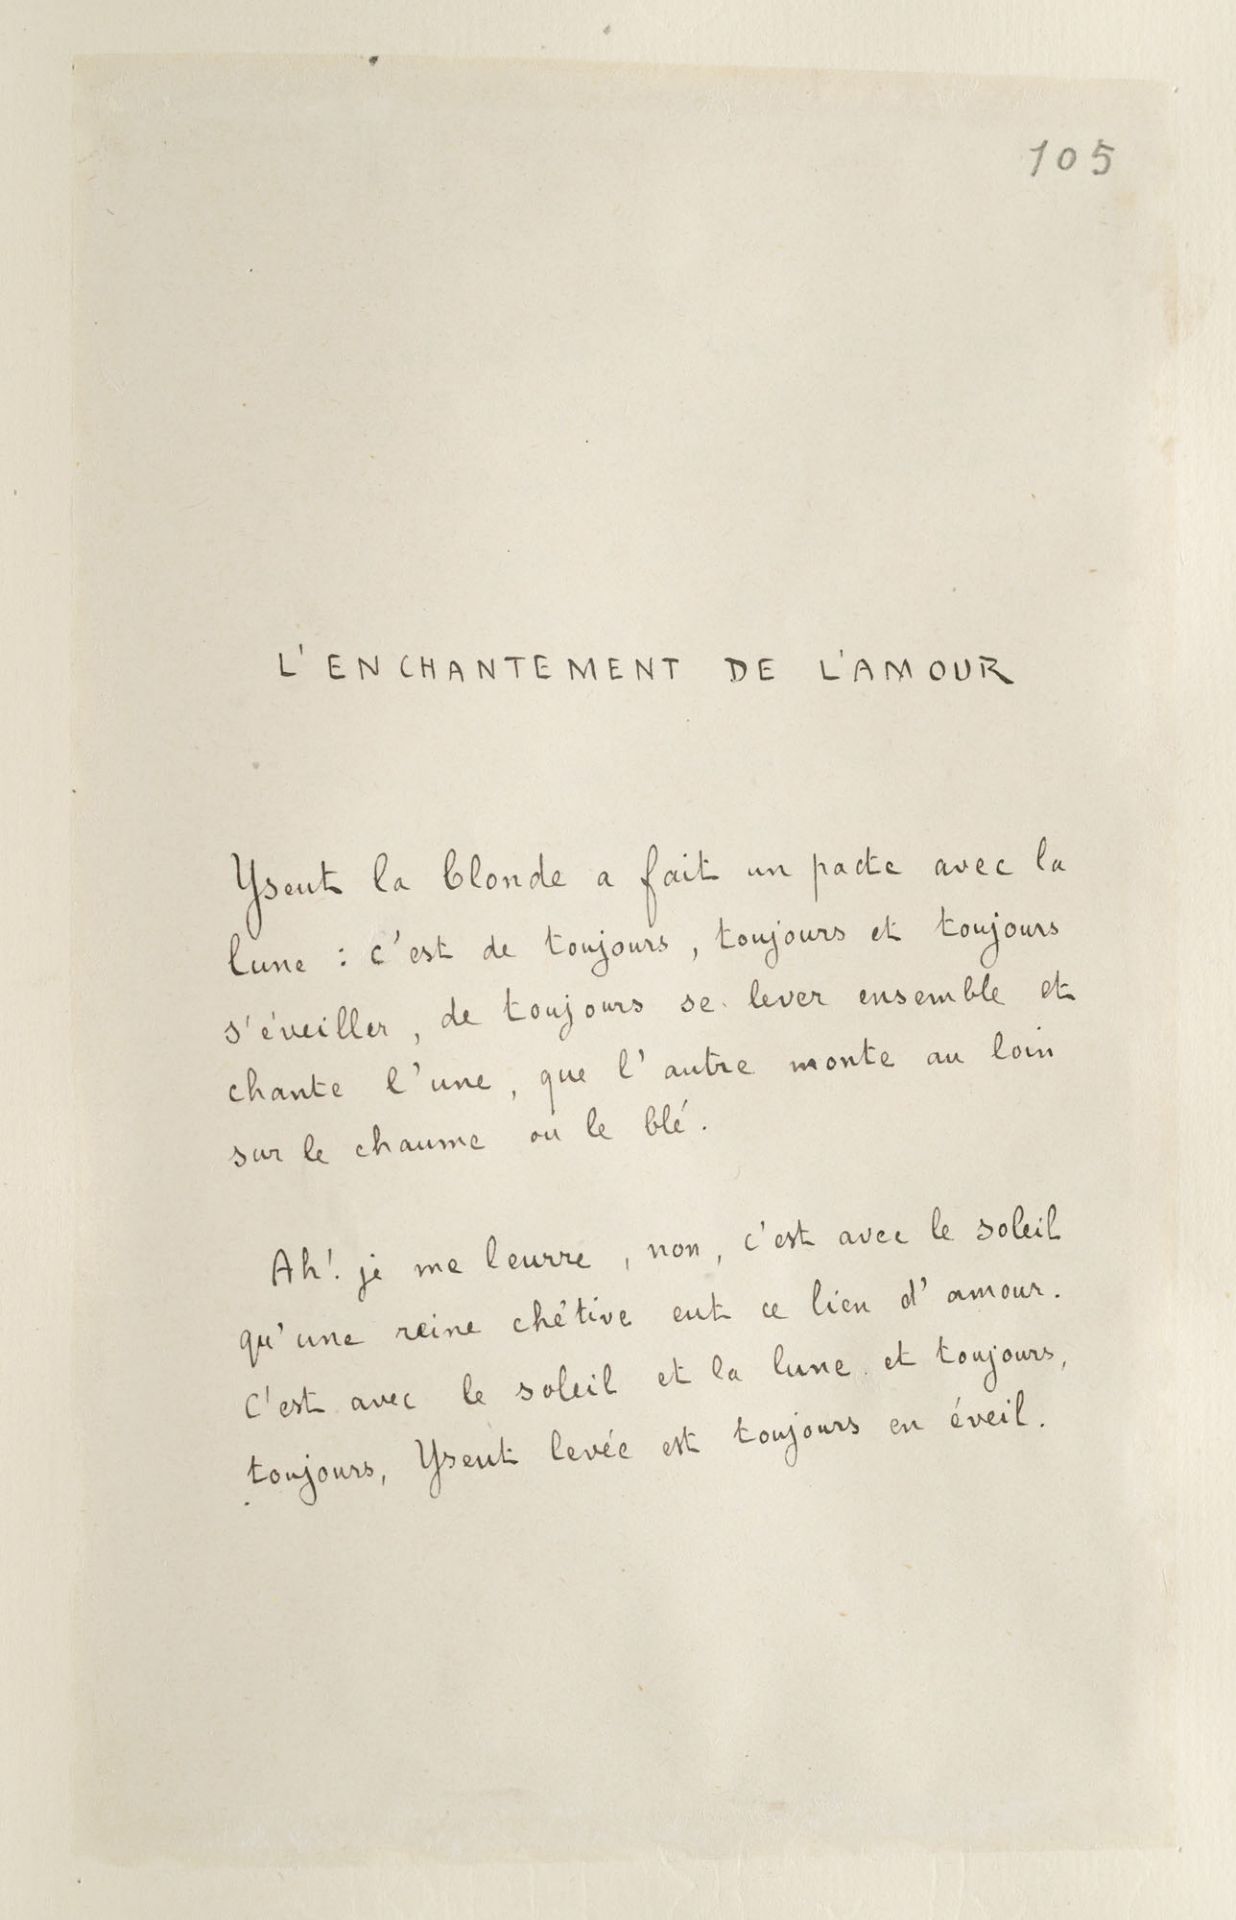 105
L'ENCHANTEMENT DE L'AMOUR
Yseut la blonde a fait un pacte avec la
lune : c'est de toujours, toujours et toujours
s'éveiller, de toujours se lever ensemble et
chante l'une, que l'autre monte au loin
sur le chaume ou le blé.
Ah! je me leurre, non, c'est avec le soleil
qu'une reine chétive eut ce lien d'amour.
C'est avec le soleil et la lune et toujours,
toujours, Yseut levée est toujours en éveil.